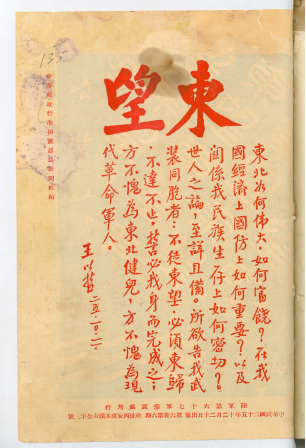 東望
東北如何偉大？如何富饒？在我
國經濟上國防上如何重要？以及
關係我民族生存上如何密切？
世人之論，至詳且備。所欲告我武
裝同胞者：不徒東望，必須東歸
，不達不止，誓必我身而完成之；
方不愧為東北健兒，方不愧為現
代革命軍人。
王以哲 二五·二·二·
陸軍第六十七軍參謀處月刊
中華民國二十五年十二月二十日出版 第六卷第六期
中華郵政特准掛號認為新聞紙類
135